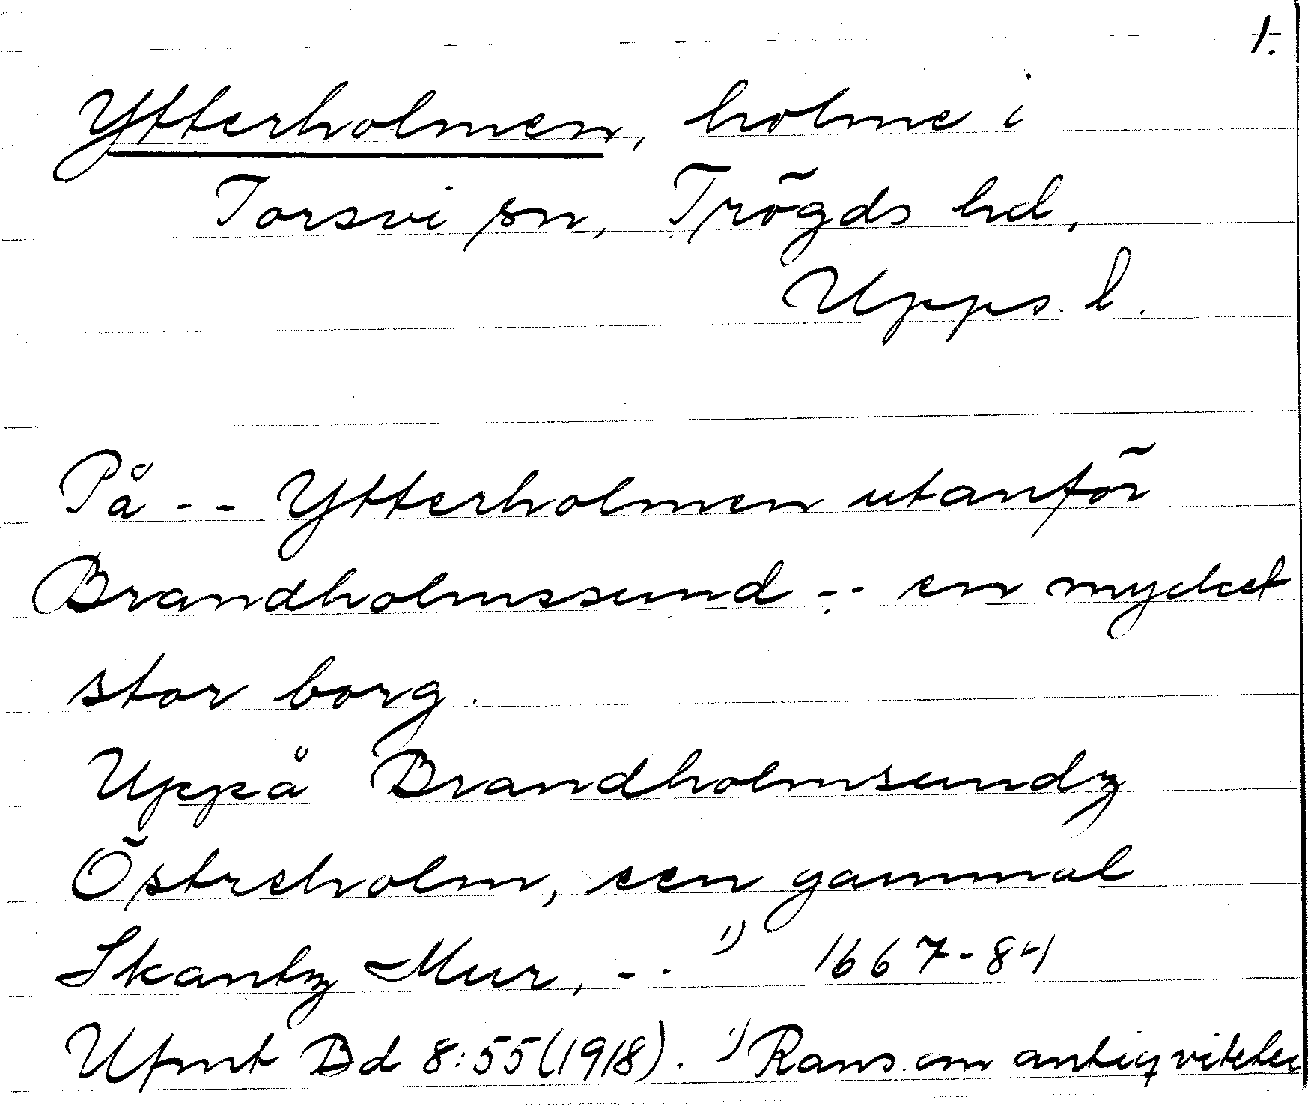 1.
Ytterholmen, holme i
Torsvi sn, Trögds hd,
Upps. l.
På - - Ytterholmen utanför
Brandholmssund - - en mycket
stor borg.
Uppå Brandholmsundz
Östreholm, een gammal
Skantz Mur, - - 1) 1667-84
Ufmt Bd 8:55 (1918). 1) Rans. om antiqviteter